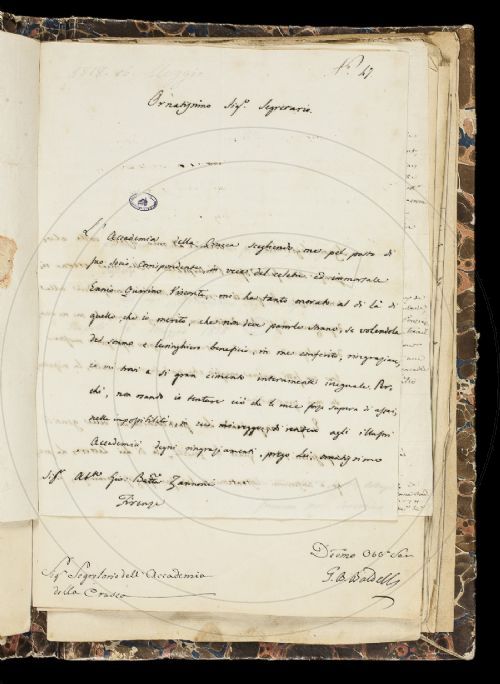 N.° 47
Ornatissimo Sig.r Segretario.
L'Accademia della Crusca scegliendo me pel posto di
suo socio Corrispondente, in vece del celebre ed immortale
Ennio Quirino Visconti, mi ha tanto onorato al di là di
quello, che io merito, che non deve parerle strano, se volendola
del sommo e lusinghiero beneficio, in me conferito, ringraziare,
io mi trovi a sì gran cimento interamente ineguale. Per
chè, non usando io tentare ciò che le mie forze supera di assai,
nella impossibilità, in cui mi veggo, di rendere agli illustri
Accademici degni ringraziamenti, prego Lei, ornatissimo
Sig.r Ab.te Gio. Batta Zannoni
Firenze
Dev.mo Obb.mo Ser.
G. B. Baldelli
Sig.r Segretario dell'Accademia
della Crusca